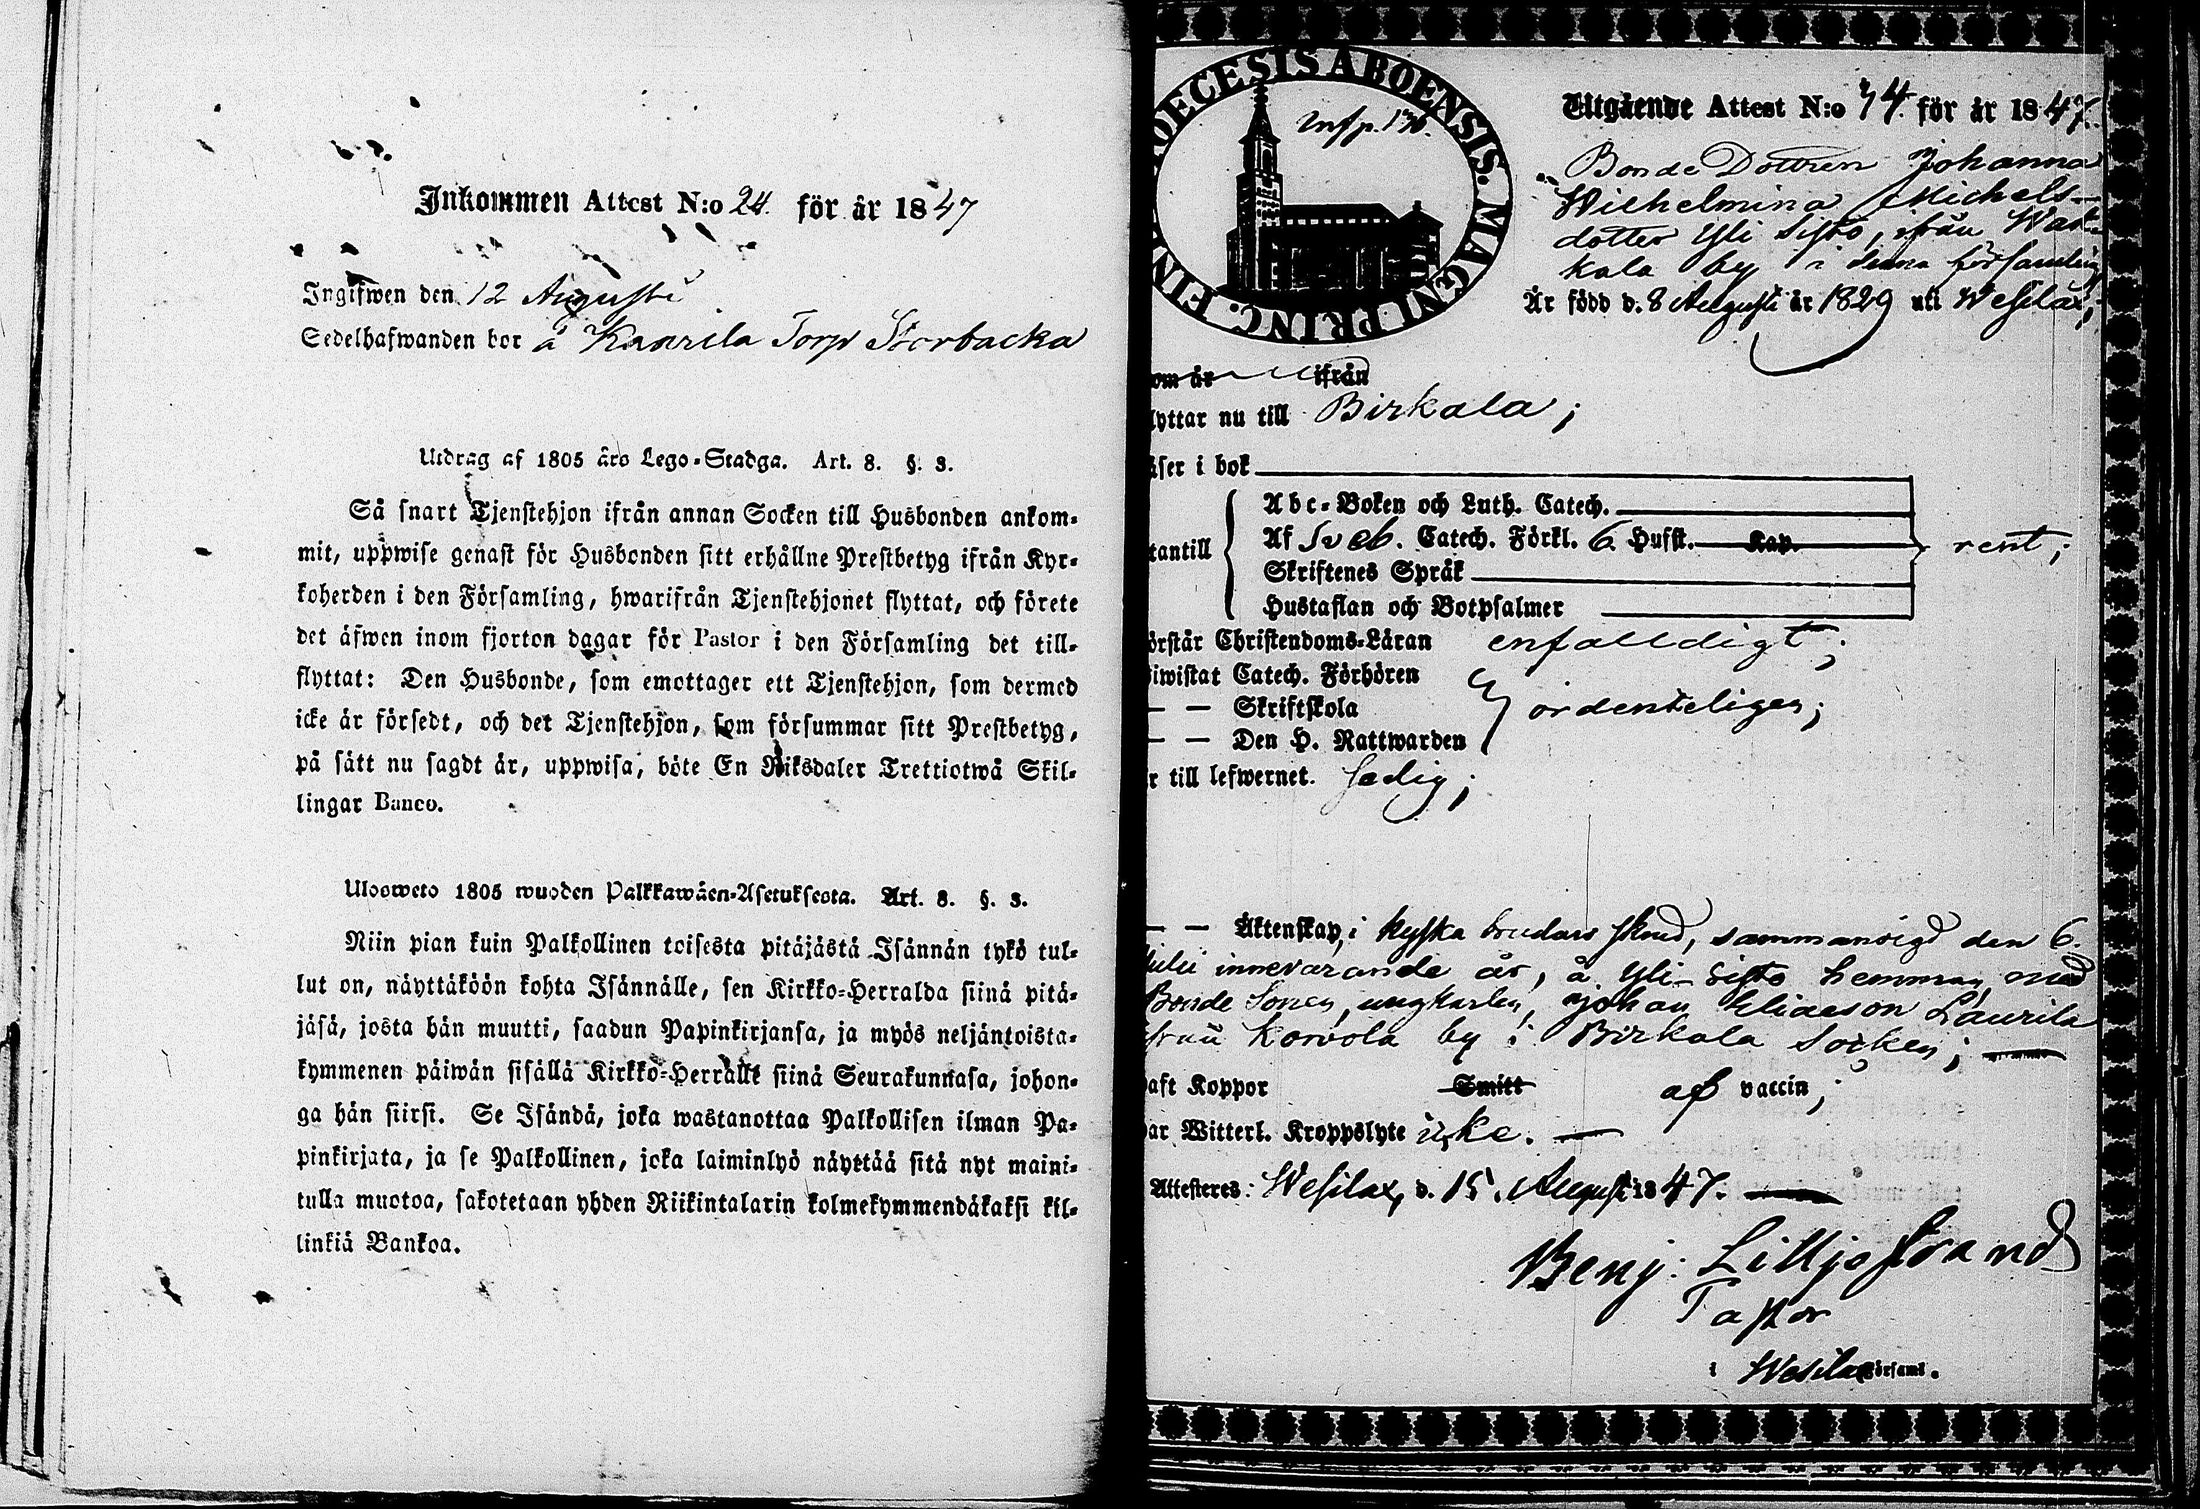 Inkommen Attest N:o 24. för år 1847
Ingifwen den 12 Augusti
Sedelhafwanden bor å Kanrila Torp Storbacka
Utdrag af 1805 års Lego-Stadga. Art. 8. §. 3.
Så snart Tjenstehjon ifrån annan Socken till Husbonden ankom-
mit, uppwise genast för Husbonden sitt erhållne Prestbetyg ifrån Kyr-
koherden i den Församling, hwarifrån Tjenstehjonet flyttat, och förete
det äfwen inom fjorton dagar för Pastor i den Församling det till-
flyttat: Den Husbonde, som emottager ett Tjenstehjon, som dermed
icke är försedt, och det Tjenstehjon, som försummar sitt Prestbetyg,
på sätt nu sagdt är, uppwisa, böte En Riksdaler Trettiotwå Skil-
lingar Banco.
Ulosweto 1805 wuoden Palkkawäen-Asetuksesta. Art. 8. §. 3.
Niin pian kuin Palkollinen toisesta pitäjästä Isännän tykö tul-
lut on, näyttäköön kohta Isännälle, sen Kirkko-Herralda siinä pitä-
jäsä, josta hän muutti, saadun Papinkirjansa, ja myös neljäntoista-
kymmenen päiwän sisällä Kirkko-Herralle siinä Seurakunnasa, johon-
ga hän siirsi. Se Isändä, joka wastanottaa Palkollisen ilman Pa-
pinkirjata, ja se Palkollinen, joka laiminlyö näyttää sitä nyt maini-
tulla muotoa, sakotetaan yhden Riikintalarin kolmekymmendäkaksi kil-
linkiä Bankoa.
OECESIS ABOENSIS. MAGNI PRINC. FIN
Utgående Attest N:o 74. för år 1847.
Bonde Dottren Johanna
Wilhelmina Michels-
dotter Yli Sisto, ifrån War-
kala by i denna församling
Är född d. 8 Augusti år 1829 uti Wesilax;
om är ifrån
lyttar nu till Birkala;
äser i bok
Abc-Boken och Luth. Catech.
tantill Af Sveb. Catech. Förkl. 6. Hufst. Kap. rent;
Skriftenes Språk
Hustaflan och Botpsalmer
örstår Christendoms-Läran enfalldigt;
iwistat Catech. Förhören
— — Skriftskola ordenteligen;
— — Den H. Nattwarden
r till lefwernet. Sedig;
— — Äktenskap, i kyska brudars skrud, sammanvigd den 6.
Julii innevarande år, å Yli-Sisto hemman, med
Bonde Sonen, ungkarlen, Johan Eliasson Laurila
ifrån Korvola by i Birkala Socken;
aft Koppor Smitt af vaccin;
ar Witterl. Kroppslyte icke.
Attesteres: Wesilax, d. 15. Augusti 1847.
Benj: Lilljestrand
Pastor
i Wesilax Församl.